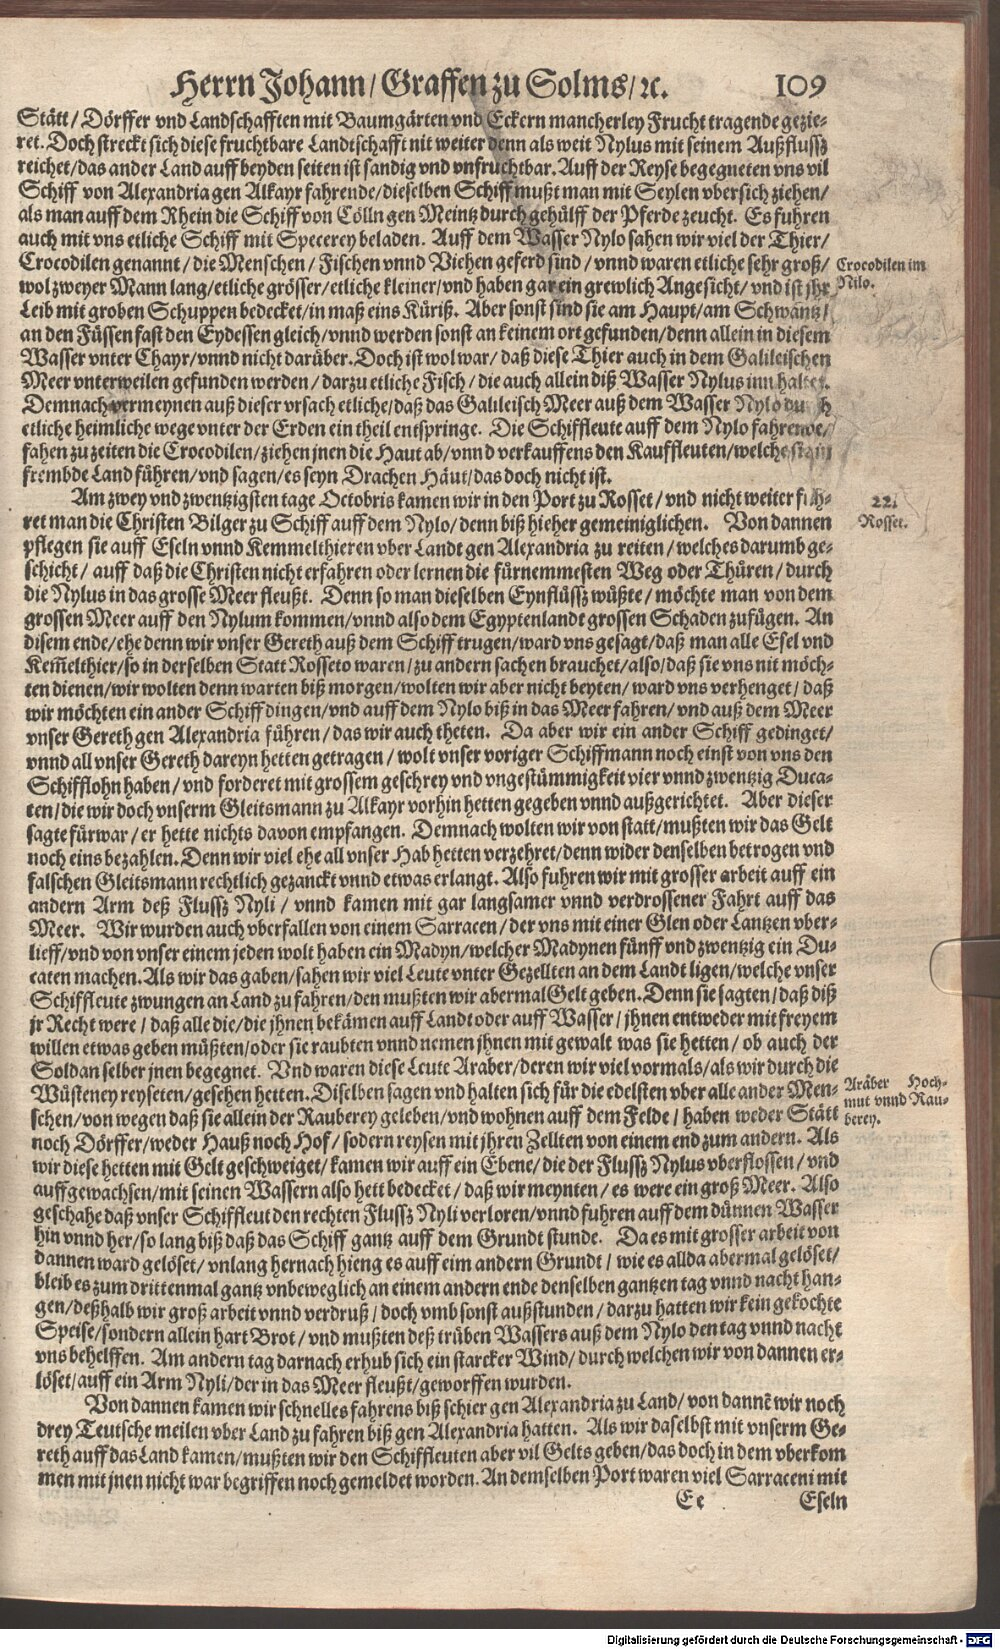 Herrn Johann/ Graffen zu Solms/ ꝛc. 109
Stätt/ Dörffer vnd Landschafften mit Baumgärten vnd Eckern mancherley Frucht tragende gezie-
ret. Doch streckt sich diese fruchtbare Landtschafft nit weiter denn als weit Nylus mit seinem Außflussz
reichet/ das ander Land auff beyden seiten ist sandig vnd vnfruchtbar. Auff der Reyse begegneten vns vil
Schiff von Alexandria gen Alkayr fahrende/ dieselben Schiff mußt man mit Seylen vbersich ziehen/
als man auff dem Rhein die Schiff von Cölln gen Meintz durch gehülff der Pferde zeucht. Es fuhren
auch mit vns etliche Schiff mit Specerey beladen. Auff dem Wasser Nylo sahen wir viel der Thier/
Crocodilen genannt/ die Menschen/ Fischen vnnd Viehen geferd sind/ vnnd waren etliche sehr groß/
Crocodilen im
Nilo.
wol zweyer Mann lang/ etliche grösser/ etliche kleiner/ vnd haben gar ein grewlich Angesicht/ vnd ist jhr
Leib mit groben Schuppen bedecket/ in maß eins Küriß. Aber sonst sind sie am Haupt/ am Schwantz/
an den Füssen fast den Eydessen gleich/ vnnd werden sonst an keinem ort gefunden/ denn allein in diesem
Wasser vnter Chayr/ vnnd nicht darüber. Doch ist wol war/ daß diese Thier auch in dem Galileischen
Meer vnterweilen gefunden werden/ darzu etliche Fisch/ die auch allein diß Wasser Nylus inn haltet.
Demnach vermeynen auß dieser vrsach etliche/ daß das Galileisch Meer auß dem Wasser Nylo durch
etliche heimliche wege vnter der Erden ein theil entspringe. Die Schiffleute auff dem Nylo fahrende/
fahen zu zeiten die Crocodilen/ ziehen jnen die Haut ab/ vnnd verkauffens den Kauffleuten/ welche
frembde Land führen/ vnd sagen/ es seyn Drachen Häut/ das doch nicht ist.
Am zwey vnd zwentzigsten tage Octobris kamen wir in den Port zu Rosset/ vnd nicht weiter füh-
22.
Rosset.
ret man die Christen Bilger zu Schiff auff dem Nylo/ denn biß hieher gemeiniglichen. Von dannen
pflegen sie auff Eseln vnnd Kemmelthieren vber Landt gen Alexandria zu reiten/ welches darumb ge-
schicht/ auff daß die Christen nicht erfahren oder lernen die fürnemmesten Weg oder Thüren/ durch
die Nylus in das grosse Meer fleußt. Denn so man dieselben Eynflüssz wüßte/ möchte man von dem
grossen Meer auff den Nylum kommen/ vnnd also dem Egyptenlandt grossen Schaden zufügen. An
disem ende/ ehe denn wir vnser Gereth auß dem Schiff trugen/ ward vns gesagt/ daß man alle Esel vnd
Kem̃elthier/ so in derselben Statt Rosseto waren/ zu andern sachen brauchet/ also/ daß sie vns nit möch-
ten dienen/ wir wolten denn warten biß morgen/ wolten wir aber nicht beyten/ ward vns verhenget/ daß
wir möchten ein ander Schiff dingen/ vnd auff dem Nylo biß in das Meer fahren/ vnd auß dem Meer
vnser Gereth gen Alexandria führen/ das wir auch theten. Da aber wir ein ander Schiff gedinget/
vnnd all vnser Gereth dareyn hetten getragen/ wolt vnser voriger Schiffmann noch einst von vns den
Schifflohn haben/ vnd forderet mit grossem geschrey vnd vngestümmigkeit vier vnnd zwentzig Duca-
ten/ die wir doch vnserm Gleitsmann zu Alkayr vorhin hetten gegeben vnnd außgerichtet. Aber dieser
sagte fürwar/ er hette nichts davon empfangen. Demnach wolten wir von statt/ mußten wir das Gelt
noch eins bezahlen. Denn wir viel ehe all vnser Hab hetten verzehret/ denn wider denselben betrogen vnd
falschen Gleitsmann rechtlich gezanckt vnnd etwas erlangt. Also fuhren wir mit grosser arbeit auff ein
andern Arm deß Flussz Nyli/ vnnd kamen mit gar langsamer vnnd verdrossener Fahrt auff das
Meer. Wir wurden auch vberfallen von einem Sarracen/ der vns mit einer Glen oder Lantzen vber-
lieff/ vnd von vnser einem jeden wolt haben ein Madyn/ welcher Madynen fünff vnd zwentzig ein Du-
caten machen. Als wir das gaben/ sahen wir viel Leute vnter Gezellten an dem Landt ligen/ welche vnser
Schiffleute zwungen an Land zu fahren/ den mußten wir abermal Gelt geben. Denn sie sagten/ daß diß
jr Recht were/ daß alle die/ die jhnen bekämen auff Landt oder auff Wasser/ jhnen entweder mit freyem
willen etwas geben müßten/ oder sie raubten vnnd nemen jhnen mit gewalt was sie hetten/ ob auch der
Soldan selber jnen begegnet. Vnd waren diese Leute Araber/ deren wir viel vormals/ als wir durch die
Wüsteney reyseten/ gesehen hetten. Diselben sagen vnd halten sich für die edelsten vber alle ander Men-
Aräber Hoch-
mut vnnd Rau-
berey.
schen/ von wegen daß sie allein der Rauberey geleben/ vnd wohnen auff dem Felde/ haben weder Stätt
noch Dörffer/ weder Hauß noch Hof/ sodern reysen mit jhren Zellten von einem end zum andern. Als
wir diese hetten mit Gelt geschweiget/ kamen wir auff ein Ebene/ die der Flussz Nylus vberflossen/ vnd
auffgewachsen/ mit seinen Wassern also hett bedecket/ daß wir meynten/ es were ein groß Meer. Also
geschahe daß vnser Schiffleut den rechten Flussz Nyli verloren/ vnnd fuhren auff dem dünnen Wasser
hin vnnd her/ so lang biß daß das Schiff gantz auff dem Grundt stunde. Da es mit grosser arbeit von
dannen ward gelöset/ vnlang hernach hieng es auff eim andern Grundt/ wie es allda abermal gelöset/
bleib es zum drittenmal gantz vnbeweglich an einem andern ende denselben gantzen tag vnnd nacht han-
gen/ deßhalb wir groß arbeit vnnd verdruß/ doch vmb sonst außstunden/ darzu hatten wir kein gekochte
Speise/ sondern allein hart Brot/ vnd mußten deß trüben Wassers auß dem Nylo den tag vnnd nacht
vns behelffen. Am andern tag darnach erhub sich ein starcker Wind/ durch welchen wir von dannen er-
löset/ auff ein Arm Nyli/ der in das Meer fleußt/ geworffen wurden.
Von dannen kamen wir schnelles fahrens biß schier gen Alexandria zu Land/ von dannẽ wir noch
drey Teutsche meilen vber Land zu fahren biß gen Alexandria hatten. Als wir daselbst mit vnserm Ge-
reth auff das Land kamen/ mußten wir den Schiffleuten aber vil Gelts geben/ das doch in dem vberkom
men mit jnen nicht war begriffen noch gemeldet worden. An demselben Port waren viel Sarraceni mit
Ee Eseln
Digitalisierung gefördert durch die Deutsche Forschungsgemeinschaft - DFG